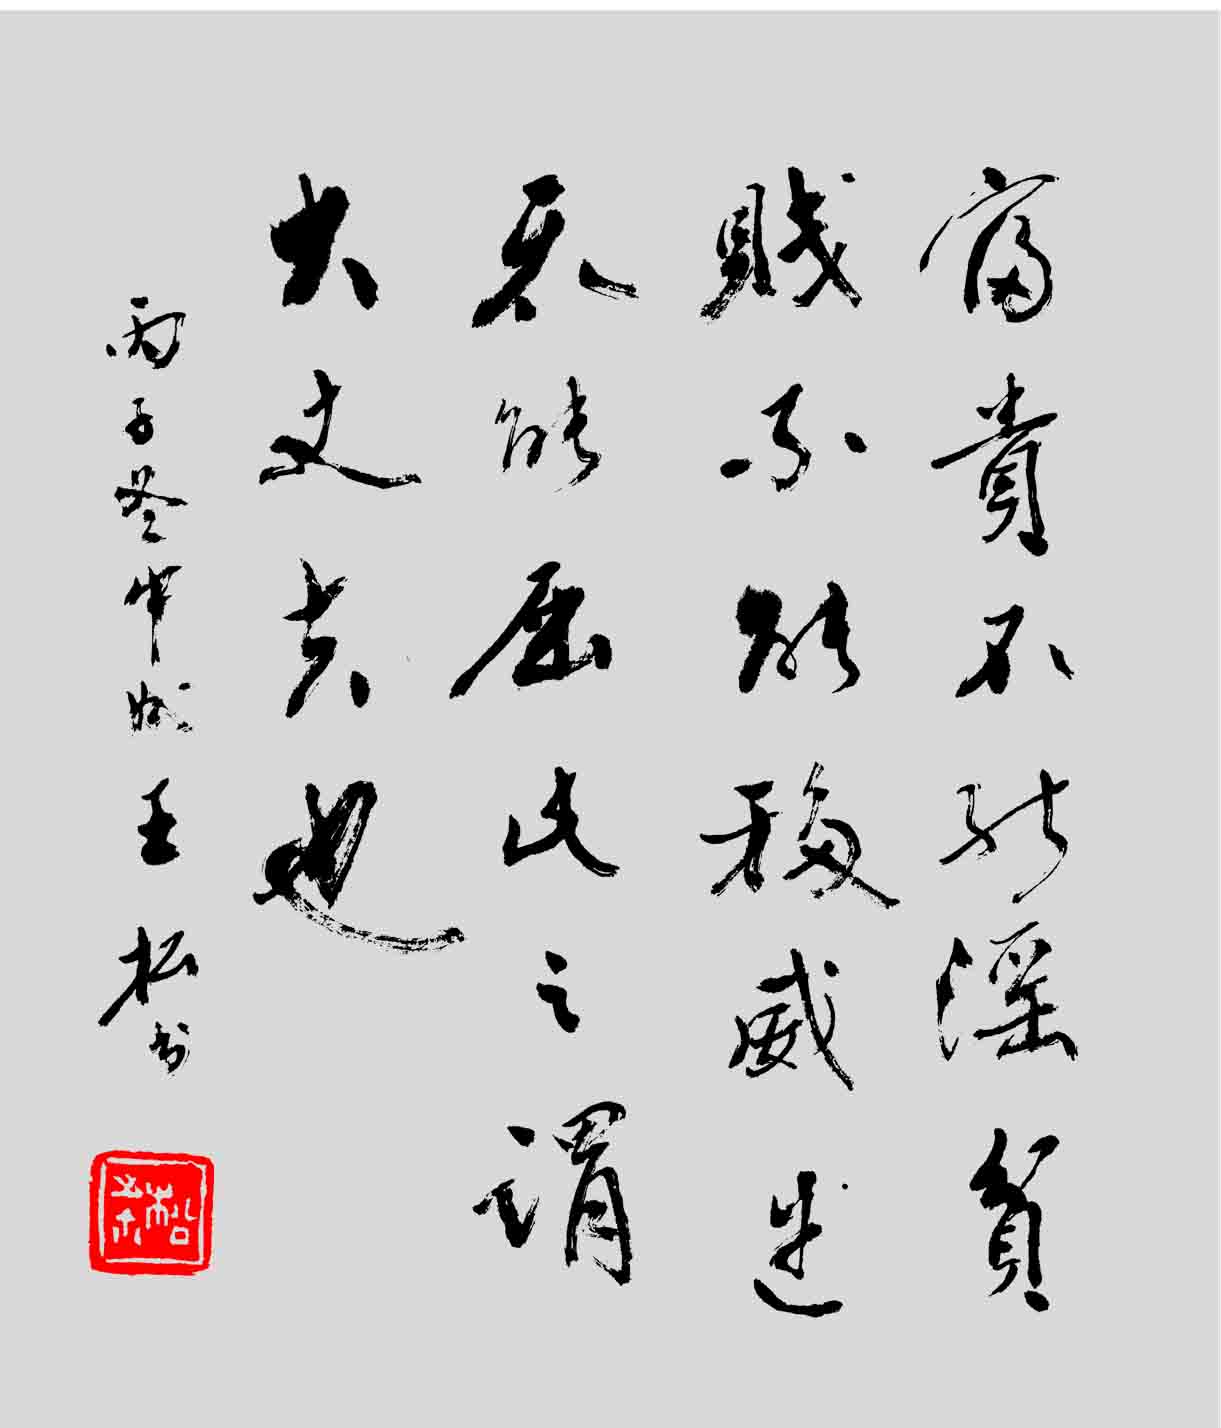 富貴不能淫貧
賤不能移威武
不能屈此之謂
大丈夫也
丙子冬申城王松书